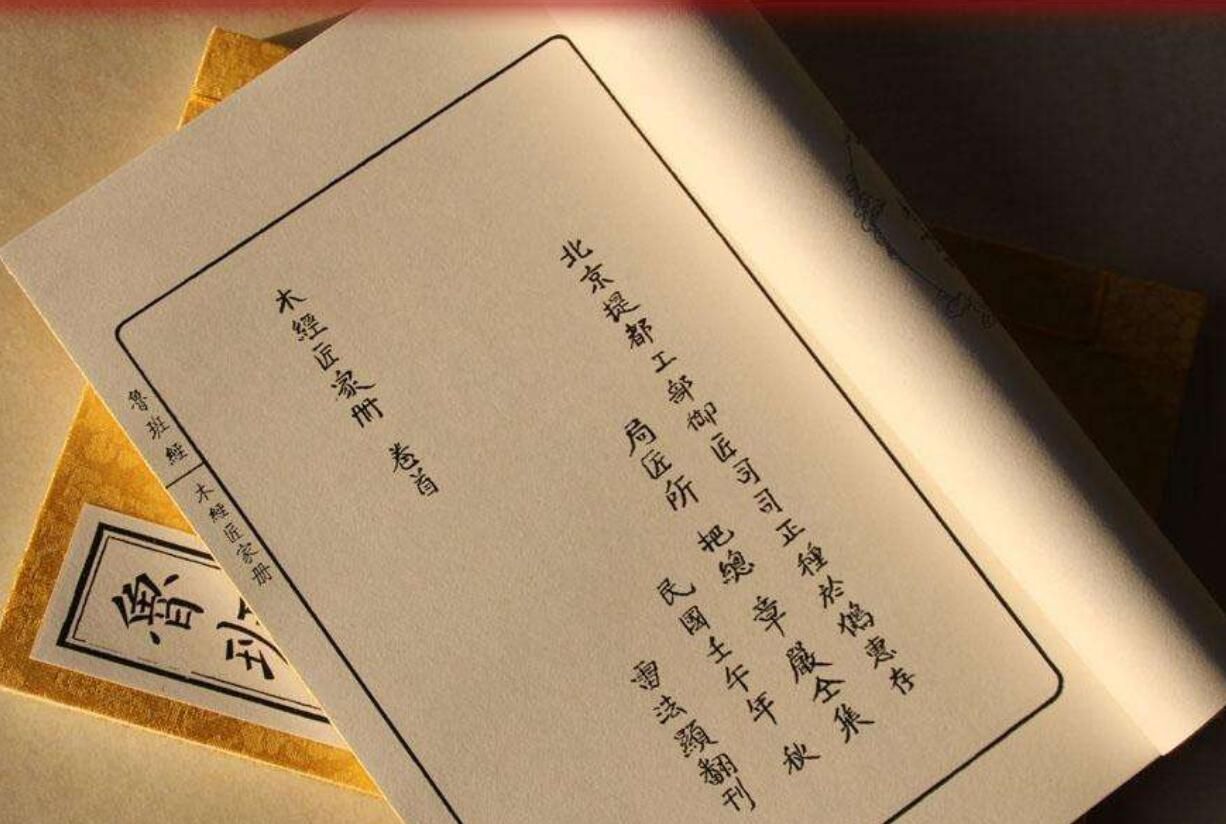 北京提都工部御匠司司正種於鶴惠存
局匠所 把總 章嚴仝集
民國壬午年 秋
雷法顯翻刊
木經匠家册 卷首
魯班經
木經匠家册
魯班